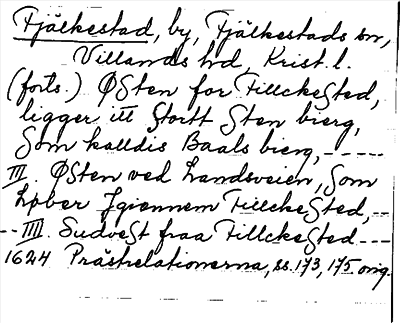 Fjälkestad, by, Fjälkestads sn,
Villands hd, Krist. l.
(forts.) Østen for Fillckested,
ligger itt stortt Sten bierg,
Som kalldis Baals bierg, - - - - -
III. Østen ved Landsveien, Som
Løber Igiennem Fillckested, - -
- - IIII. Sudvest fraa Fillckested - - - -
1624 Prästrelationerna, ss. 173, 175 orig.